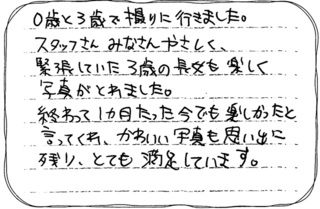 0歳と3歳で撮りに行きました。
スタッフさん みなさんやさしく、
緊張していた3歳の長女も楽しく
写真がとれました。
終わって1カ月たった今でも楽しかったと
言ってくれ、かわいい写真も思い出に
残り、とても満足しています。